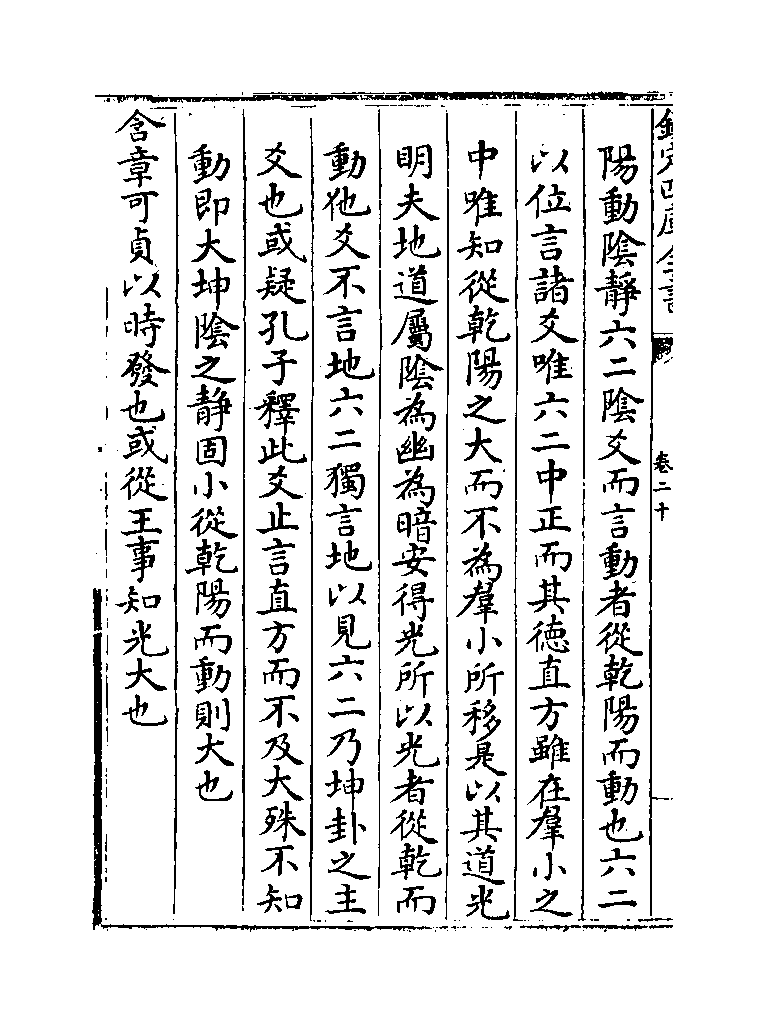 欽定四庫全書
卷二十
陽動陰靜六二陰爻而言動者從乾陽而動也六二
以位言諸爻唯六二中正而其徳直方雖在羣小之
中唯知從乾陽之大而不為羣小所移是以其道光
明夫地道屬陰為幽為暗安得光所以光者從乾而
動他爻不言地六二獨言地以見六二乃坤卦之主
爻也或疑孔子釋此爻止言直方而不及大殊不知
動即大坤陰之靜固小從乾陽而動則大也
含章可貞以時發也或從王事知光大也